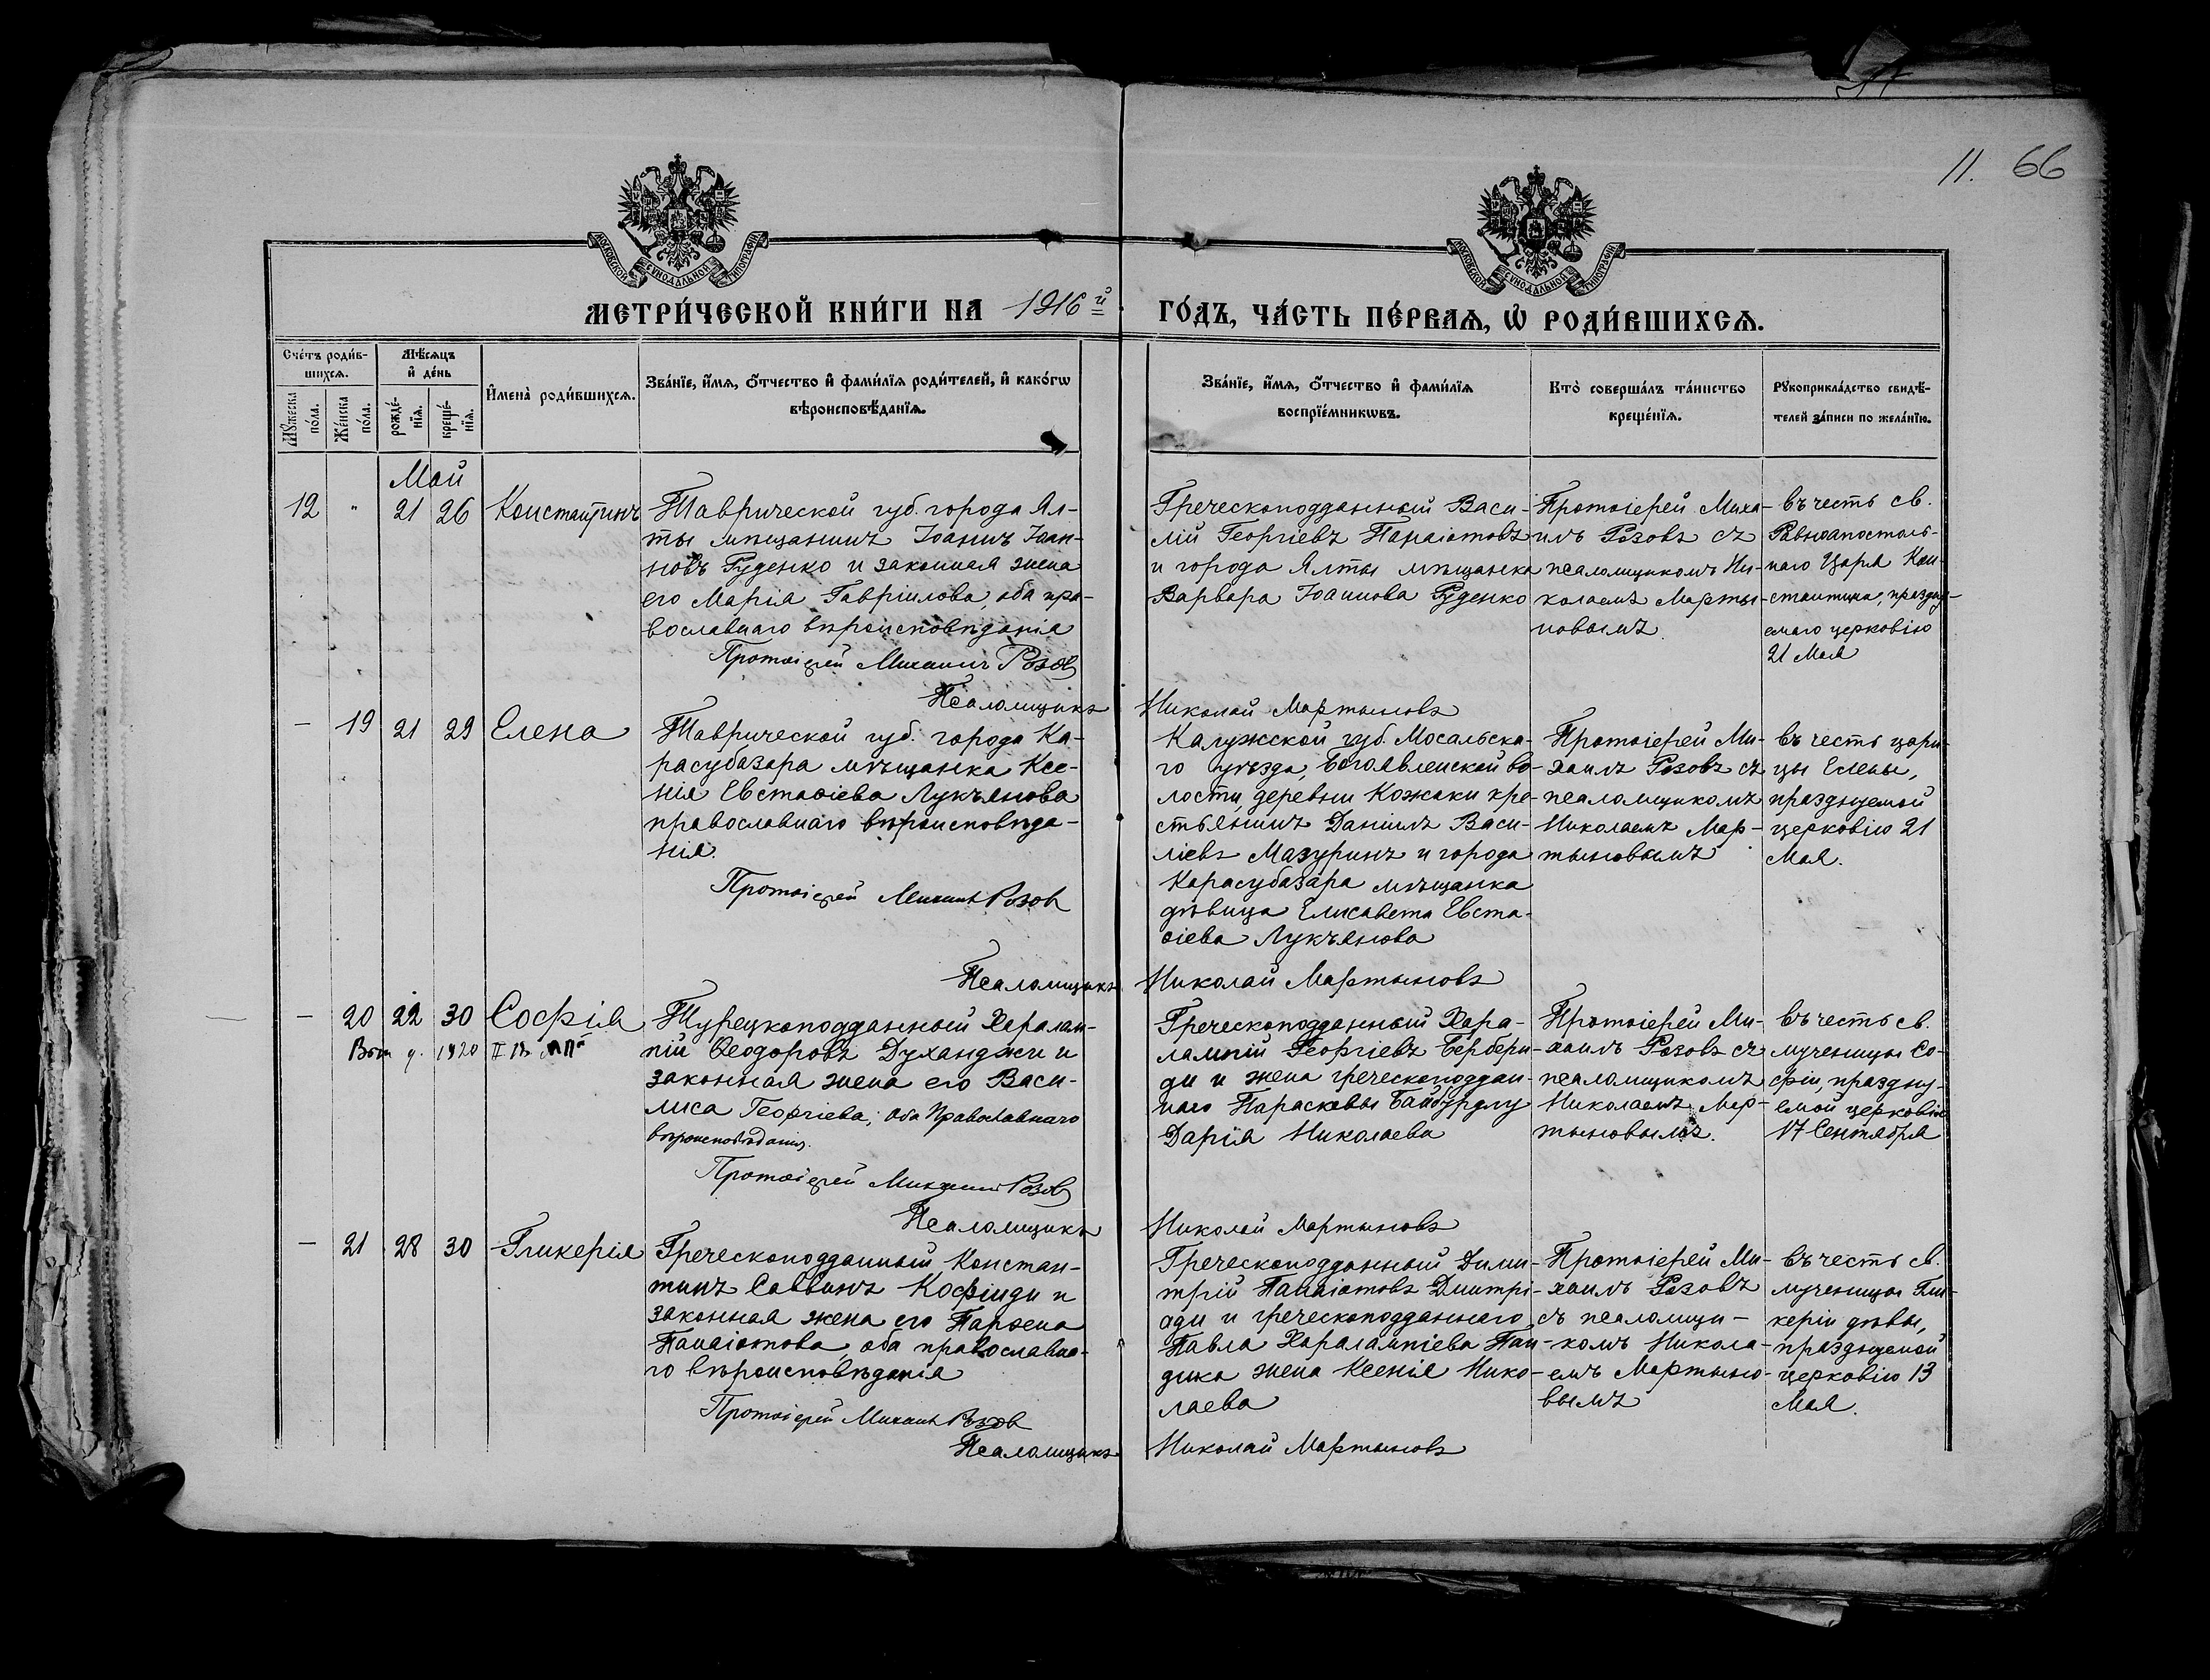 11. 66
МОСКОВСКОЙ СѴНОДАЛЬНОЙ ТИПОГРАФІИ
МОСКОВСКОЙ СѴНОДАЛЬНОЙ ТИПОГРАФІИ
МЕТРИ́ЧЕСКОЙ КНИ́ГИ НА 1916й ГО́ДЪ, ЧА́СТЬ ПЕ́РВАѦ, Ѡ҆ РОДИ́ВШИХСѦ.
Сче́тъ роди́в-
шихсѧ.
Мѹ́жеска
по́ла.
Же́нска
по́ла.
Мѣ́сѧцъ
и҆ де́нь
рожде́-
нїѧ.
креще́-
нїѧ.
И҆мена̀ роди́вшихсѧ.
Зва́нїе, и҆́мѧ, ѻ҆́тчество и҆ фами́лїѧ роди́телей, и҆ како́гѡ
вѣроисповѣ́данїѧ.
Зва́нїе, и҆́мѧ, ѻ҆́тчество и҆ фами́лїѧ
воспрїе́мникѡвъ.
Кто̀ соверша́лъ та́инство
креще́нїѧ.
Рѹкоприкла́дство свидѣ́-
телей за́писи по жела́нїю.
Май
12 " 21 26 Константинъ
Таврической губ. города Ял-
ты мѣщанинъ Іоаннъ Іоан-
новъ Руденко и законная жена
его Марія Гавріилова, оба пра-
вославнаго вѣроисповѣданія
Протоіерей Михаилъ Розов
Греческоподданный Васи-
лій Георгіевъ Панаіотовъ
и города Ялты мѣщанка
Варвара Іоаннова Руденко
Протоіерей Миха-
илъ Розовъ съ
псаломщикомъ Ни-
колаемъ Марты-
новымъ.
въ честь св.
Равноапостоль-
наго Царя Кон-
стантина, праздну-
емаго церковію
21 Мая
Псаломщикъ Николай Мартыновъ
– 19 21 29 Елена
Таврической губ. города Ка-
расубазара мѣщанка Ксе-
нія Евстаѳіева Лукъянова
православнаго вѣроисповѣда-
нія.
Протоіерей Михаил Розов
Калужской губ. Мосальска-
го уѣзда, Богоявленской во-
лости, деревни Кожаки кре-
стьянинъ Даніилъ Васи-
ліевъ Мазуринъ и города
Карасубазара мѣщанка
дѣвица Елисавета Евста-
ѳіева Лукъянова
Протоіерей Ми-
хаилъ Розовъ съ
псаломщикомъ
Николаемъ Мар-
тыновымъ
въ честь цари-
цы Елены,
празднуемой
церковію 21
Мая.
Псаломщикъ Николай Мартыновъ
– 20 22 30 Софія
1920
Турецкоподданный Харалам-
пій Ѳеодоровъ Духанджи и
законная жена его Васи-
лиса Георгіева; оба Православнаго
вѣроисповѣданія.
Протоіерей Михаил Розов
Греческоподданный Хара-
лампій Георгіевъ Бербери-
ди и жена греческоподдан-
наго Параскевы Байбурдлу
Дарія Николаева
Протоіерей Ми-
хаилъ Розовъ съ
псаломщикомъ
Николаемъ Мар-
тыновымъ.
въ честь св.
мученицы Со-
фіи, праздну-
емой церковію
17 Сентября
Псаломщикъ Николай Мартыновъ
– 21 28 30 Гликерія
Греческоподданный Констан-
тинъ Саввинъ Кофиди и
законная жена его Парѳена
Панаіотова, оба православна-
го вѣроисповѣданія
Протоіерей Михаил Розов
Греческоподданный Дими-
трій Панаіотовъ Димитрі-
ади и греческоподданнаго
Павла Харалампіева Пан-
дика жена Ксенія Нико-
лаева
Протоіерей Ми-
хаилъ Розовъ
съ псаломщи-
комъ Никола-
емъ Мартыно-
вымъ
въ честь св.
мученицы Гли-
керіи дѣвы,
празднуемой
церковію 13
Мая.
Псаломщикъ Николай Мартыновъ